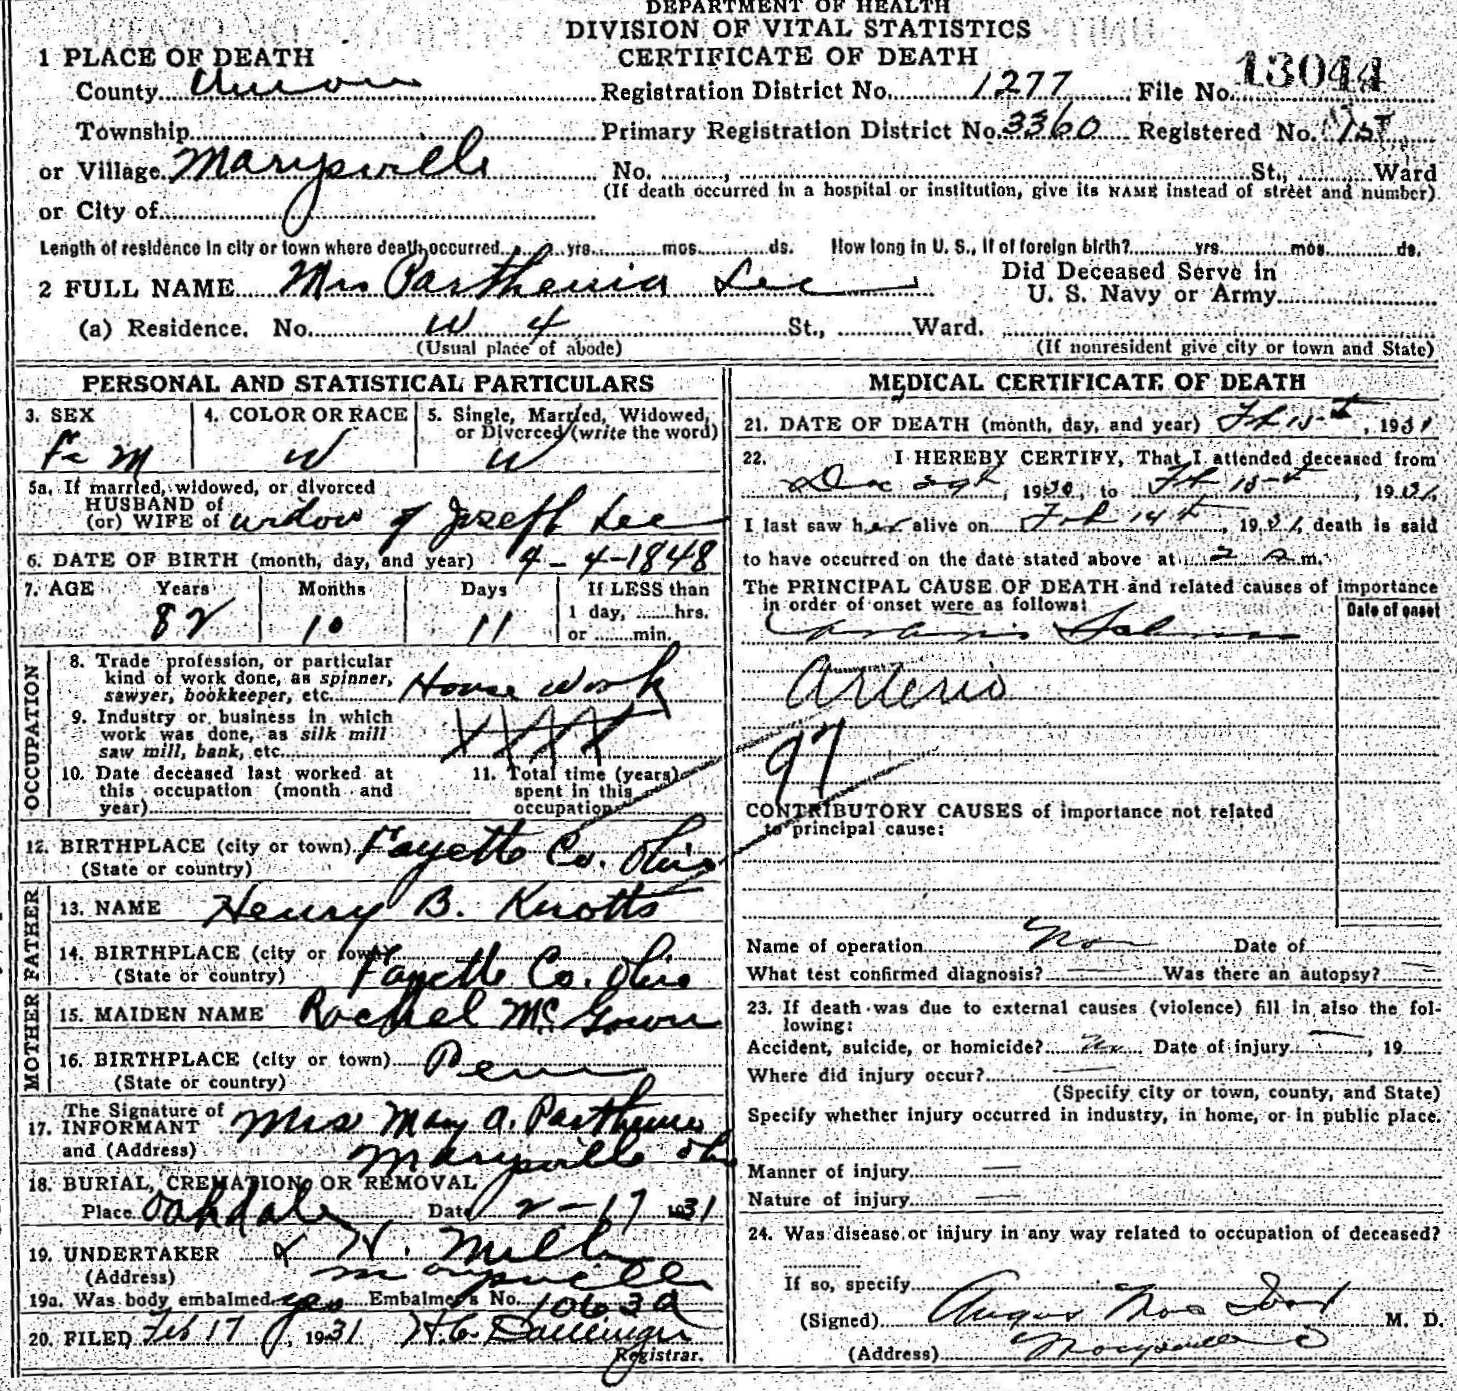 DEPARTMENT OF HEALTH
DIVISION OF VITAL STATISTICS
CERTIFICATE OF DEATH
1 PLACE OF DEATH
County Union Registration District No. 1277 File No. 13044
Township Primary Registration District No. 3360 Registered No.
or Village Marysville No. , St., Ward
(If death occurred in a hospital or institution, give its NAME instead of street and number)
or City of
Length of residence in city or town where death occurred yrs. mos. ds. How long in U. S., if of foreign birth? yrs. mos. ds.
2 FULL NAME Mrs Parthenia Lee Did Deceased Serve in U. S. Navy or Army
(a) Residence. No. W 4 St., Ward.
(Usual place of abode) (If nonresident give city or town and State)
PERSONAL AND STATISTICAL PARTICULARS
3. SEX 4. COLOR OR RACE 5. Single, Married, Widowed, or Divorced (write the word)
Fe m W W
5a. If married, widowed, or divorced
HUSBAND of
(or) WIFE of widow of Joseph Lee
6. DATE OF BIRTH (month, day, and year) 4-4-1848
7. AGE Years Months Days If LESS than
1 day, hrs.
82 10 11 or min.
OCCUPATION
8. Trade, profession, or particular
kind of work done, as spinner,
sawyer, bookkeeper, etc. House work
9. Industry or business in which
work was done, as silk mill
saw mill, bank, etc. XXXX
10. Date deceased last worked at
this occupation (month and
year)
11. Total time (years)
spent in this
occupation
12. BIRTHPLACE (city or town) Fayette Co. Ohio
(State or country)
FATHER
13. NAME Henry B. Knotts
14. BIRTHPLACE (city or town)
(State or country) Fayette Co. Ohio
MOTHER
15. MAIDEN NAME Rachel McGown
16. BIRTHPLACE (city or town) Penn
(State or country)
17. The Signature of
INFORMANT Mrs Mary A.
and (Address) Marysville Ohio
18. BURIAL, CREMATION, OR REMOVAL
Place Oakdale Date 2-17 1931
19. UNDERTAKER H.
(Address) Marysville
19a. Was body embalmed yes Embalmer's No. 1063a
20. FILED Feb 17, 1931 H.C.
Registrar.
MEDICAL CERTIFICATE OF DEATH
21. DATE OF DEATH (month, day, and year) Feb 15th, 1931
22. I HEREBY CERTIFY, That I attended deceased from
Dec, 1930, to Feb 15th, 1931
I last saw her alive on Feb 14th, 1931, death is said
to have occurred on the date stated above at 2 a m.
The PRINCIPAL CAUSE OF DEATH and related causes of importance
in order of onset were as follows: Date of onset
Arterio
97
CONTRIBUTORY CAUSES of importance not related
to principal cause:
Name of operation Date of
What test confirmed diagnosis? — Was there an autopsy? —
23. If death was due to external causes (violence) fill in also the fol-
lowing:
Accident, suicide, or homicide? Date of injury —, 19
Where did injury occur? —
(Specify city or town, county, and State)
Specify whether injury occurred in industry, in home, or in public place.
Manner of injury —
Nature of injury —
24. Was disease or injury in any way related to occupation of deceased?
If so, specify
(Signed) Angus M. D.
(Address) Marysville O